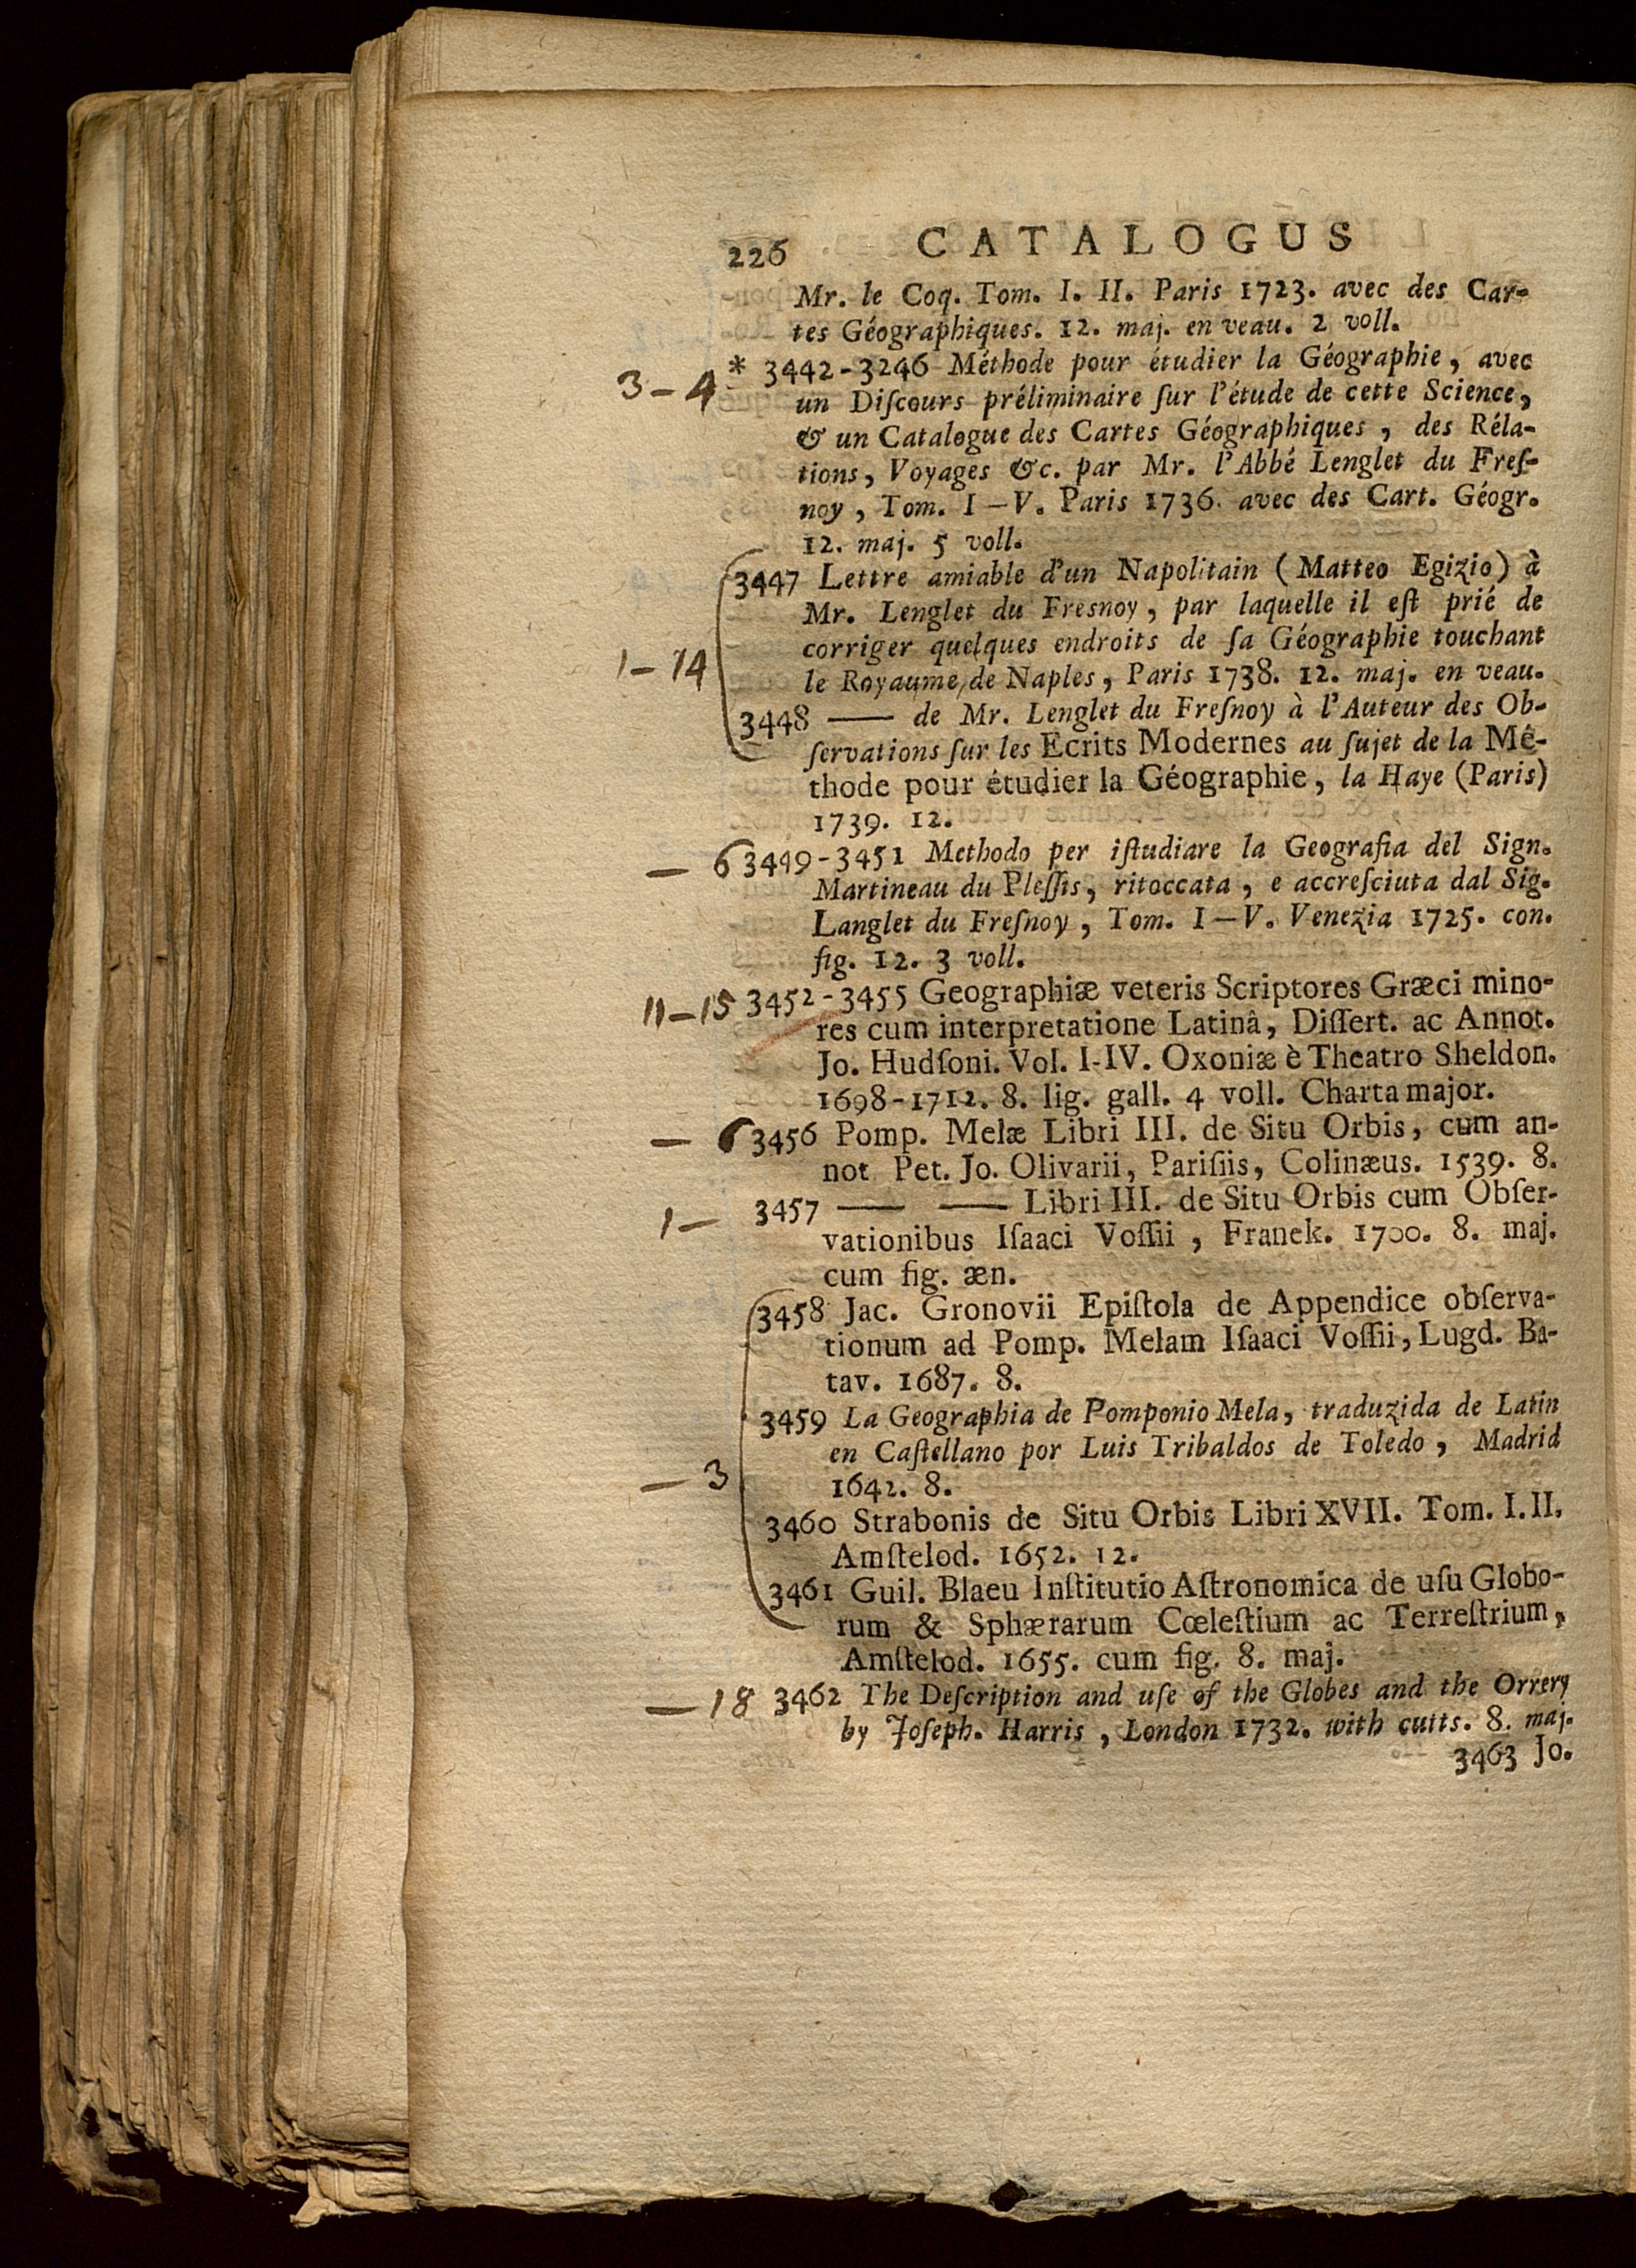 226 CATALOGUS
Mr. le Coq. Tom. I. II. Paris 1723. avec des Car-
tes Géographiques. 12. maj. en veau. 2 voll.
3-4 * 3442-3246 Méthode pour étudier la Géographie, avec
un Diſcours préliminaire ſur l'étude de cette Science,
& un Catalogue des Cartes Géographiques, des Réla-
tions, Voyages &c. par Mr. l'Abbé Lenglet du Freſ-
noy, Tom. I—V. Paris 1736. avec des Cart. Géogr.
12. maj. 5 voll.
3447 Lettre amiable d'un Napolitain (Matteo Egizio) à
Mr. Lenglet du Fresnoy, par laquelle il eſt prié de
corriger quelques endroits de ſa Géographie touchant
1-14 le Royaume, de Naples, Paris 1738. 12. maj. en veau.
3448 —— de Mr. Lenglet du Freſnoy à l'Auteur des Ob-
ſervations ſur les Ecrits Modernes au ſujet de la Mé-
thode pour étudier la Géographie, la Haye (Paris)
1739. 12.
— 6 3449-3451 Methodo per iſtudiare la Geografia del Sign.
Martineau du Pleſſis, ritoccata, e accreſciuta dal Sig.
Langlet du Freſnoy, Tom. I—V. Venezia 1725. con.
fig. 12. 3 voll.
11-15 3452-3455 Geographiæ veteris Scriptores Græci mino-
res cum interpretatione Latinâ, Diſſert. ac Annot.
Jo. Hudſoni. Vol. I-IV. Oxoniæ è Theatro Sheldon.
1698-1712. 8. lig. gall. 4 voll. Charta major.
— 6 3456 Pomp. Melæ Libri III. de Situ Orbis, cum an-
not Pet. Jo. Olivarii, Pariſiis, Colinæus. 1539. 8.
1— 3457 —— —— Libri III. de Situ Orbis cum Obſer-
vationibus Iſaaci Voſſii, Franek. 1700. 8. maj.
cum fig. æn.
3458 Jac. Gronovii Epiſtola de Appendice obſerva-
tionum ad Pomp. Melam Iſaaci Voſſii, Lugd. Ba-
tav. 1687. 8.
3459 La Geographia de Pomponio Mela, traduzida de Latin
en Caſtellano por Luis Tribaldos de Toledo, Madrid
— 3 1642. 8.
3460 Strabonis de Situ Orbis Libri XVII. Tom. I. II.
Amſtelod. 1652. 12.
3461 Guil. Blaeu Inſtitutio Aſtronomica de uſu Globo-
rum & Sphærarum Cœleſtium ac Terreſtrium,
Amſtelod. 1655. cum fig. 8. maj.
— 18 3462 The Deſcription and uſe of the Globes and the Orrery
by Joſeph. Harris, London 1732. with cuits. 8. maj.
3463 Jo.